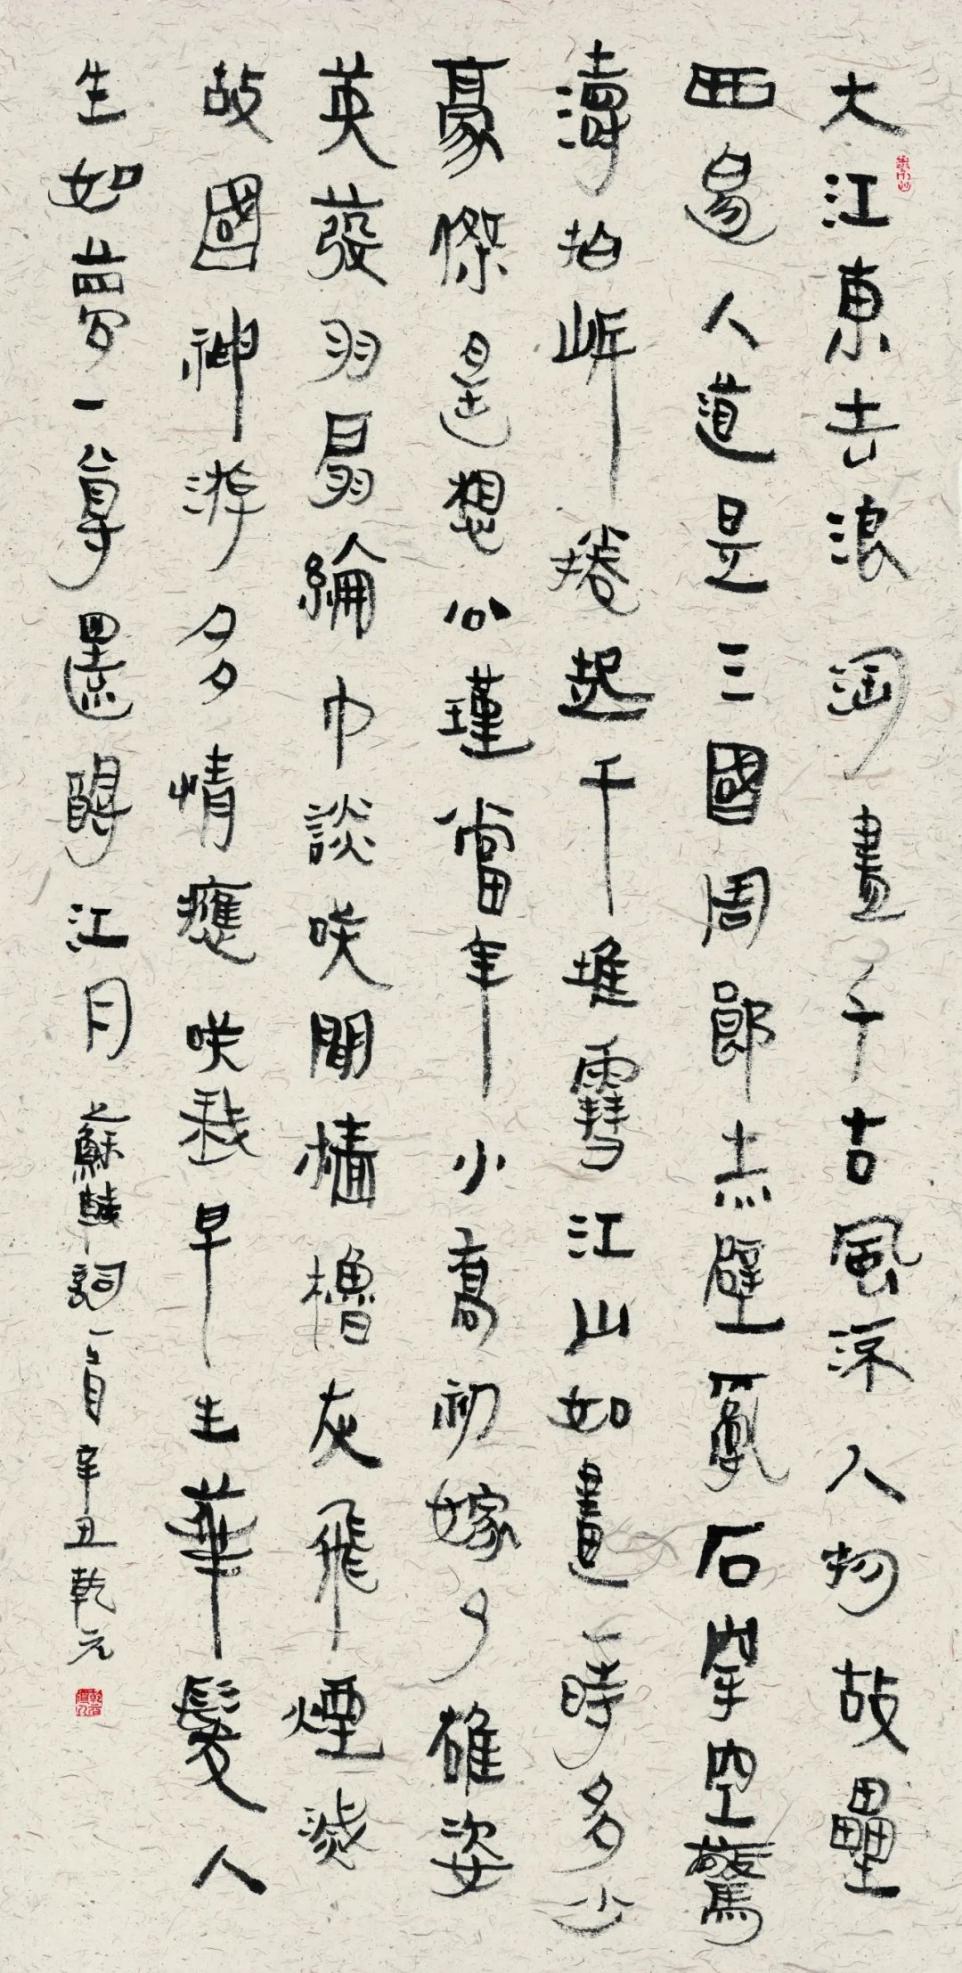 大江東去浪淘盡千古風流人物故壘
西邊人道是三國周郎赤壁亂石穿空驚
濤拍岸捲起千堆雪江山如畫一時多少
豪傑遥想公瑾當年小喬初嫁了雄姿
英發羽扇綸巾談咲間檣櫓灰飛煙滅
故國神游多情應咲我早生華髮人
生如夢一尊還酹江月 蘇軾詞一首辛丑乾元